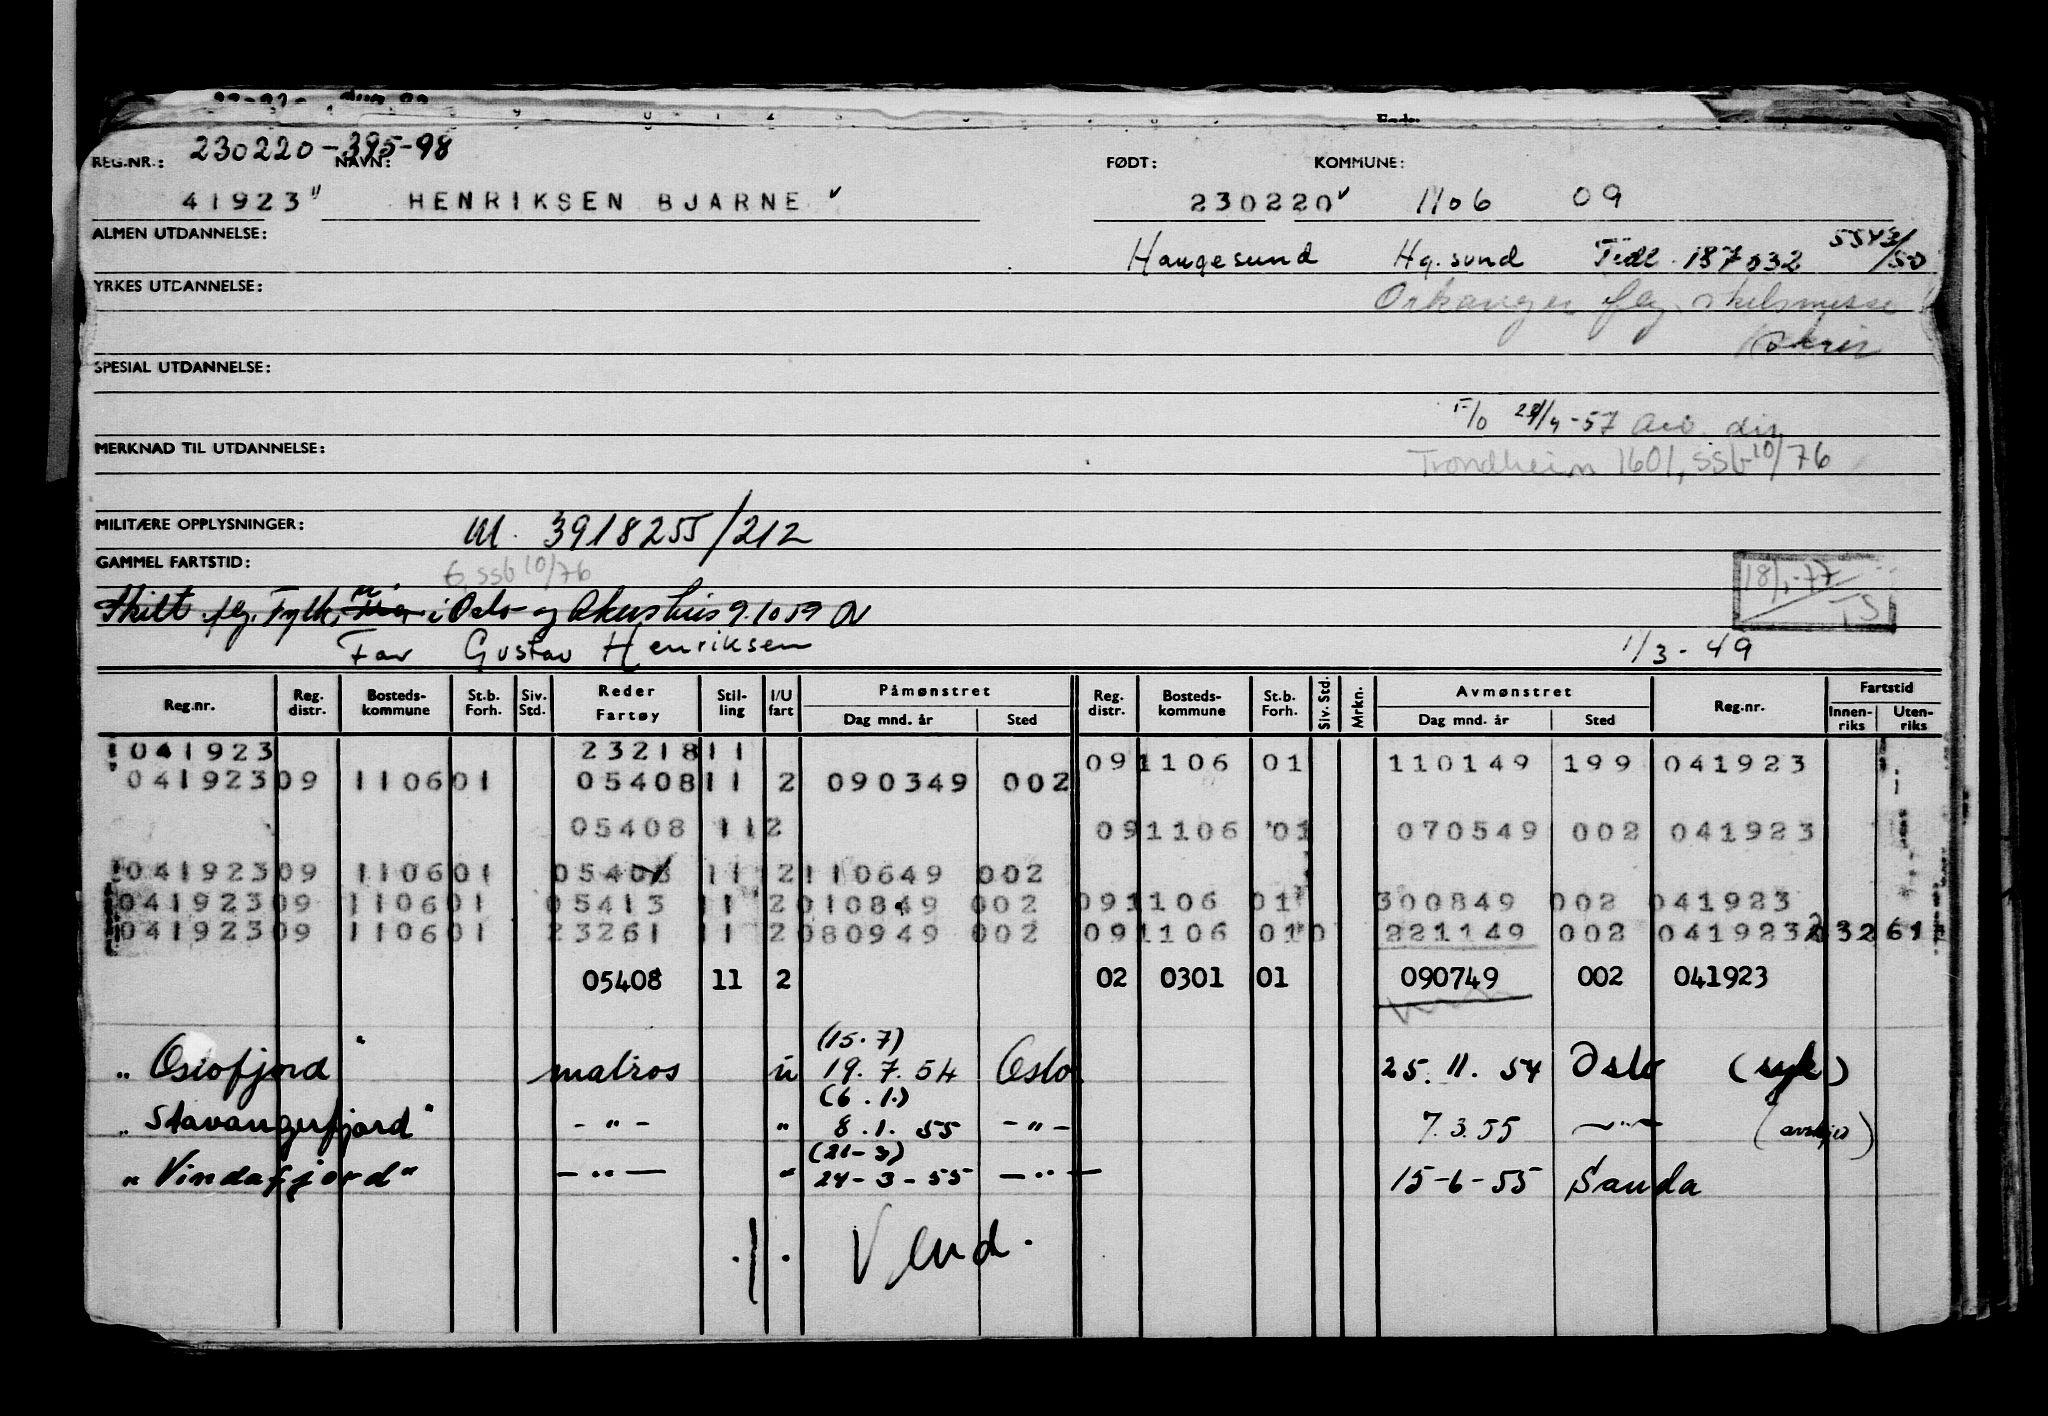 230220-395-98
REG.NR.: NAVN: FØDT: KOMMUNE:
41923 HENRIKSEN BJARNE 230220 1106 09
ALMEN UTDANNELSE:
Haugesund Hg.sund Tidl. 187032 5543/50
YRKES UTDANNELSE:
Orkanger flg.
SPESIAL UTDANNELSE:
F/O 29/4-57
MERKNAD TIL UTDANNELSE:
Trondheim 1601, SSb 10/76
MILITÆRE OPPLYSNINGER: M. 3918255/212
GAMMEL FARTSTID:
G, SSb 10/76
18/1-77
TS
Skilt flg. Fylk. i Oslo og Akershus 9.10 59
Far Gustav Henriksen 1/3-49
Reg.nr. Reg. distr. Bosteds-kommune St.b. Forh. Siv. Std. Reder Fartøy Stil-ling I/U fart Påmønstret Dag mnd. år Sted Reg. distr. Bosteds-kommune St.b. Forh. Siv. Std. Mrkn. Avmønstret Dag mnd. år Sted Reg.nr. Fartstid Innen-riks Uten-riks
041923 23218 11 09 1106 01 110149 199 041923
041923 09 1106 01 05408 11 2 090349 002
05408 11 2 09 1106 01 070549 002 041923
041923 09 1106 01 05408 11 2 110649 002
041923 09 1106 01 05413 11 2 010849 002 09 1106 01 300849 002 041923
041923 09 1106 01 23261 11 2 080949 002 09 1106 01 0 221149 002 041923 032 61
05408 11 2 02 0301 01 090749 002 041923
(15.7)
"Oslofjord" matros u 19.7.54 Oslo 25.11.54 Oslo (syk)
(6.1.)
"Stavangerfjord" - " - " 8.1.55 - " - 7.3.55 - " -
(21-3)
"Vindafjord" - " - " 24-3-55 - " - 15-6-55 Sauda
./. Vend.